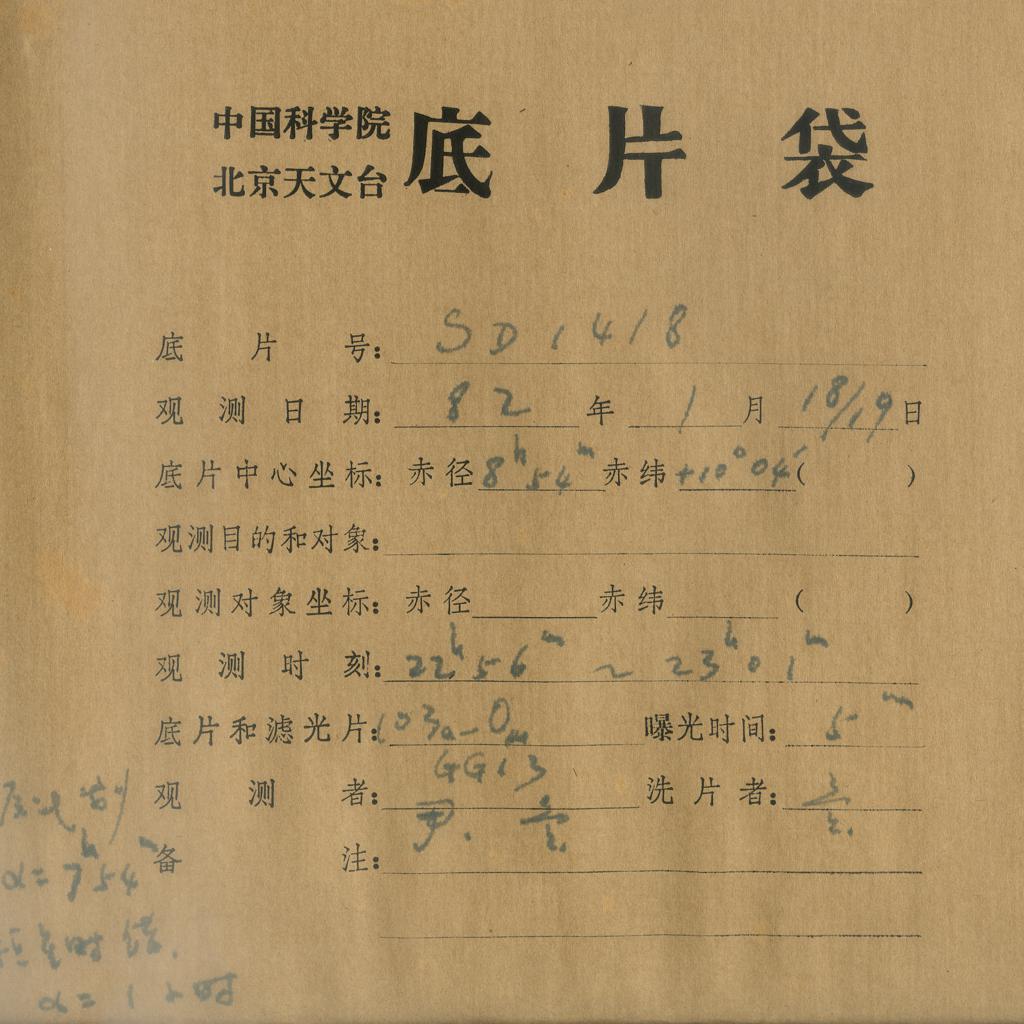 中国科学院
北京天文台
底片袋
底片号: SD1418
观测日期: 82年1月18/19日
底片中心坐标: 赤径8h54m赤纬+10°04′( )
观测目的和对象:
观测对象坐标: 赤径 赤纬 ( )
观测时刻: 22h56m~23h01m
底片和滤光片: 103a-O 曝光时间: 5m
GG13
观测者: 尹. 洗片者:
备注:
α=7h54m
恒星时错.
α=1小时